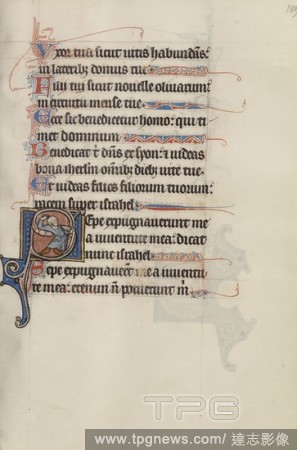 Uxor tua sicut vitis habundans:
in lateribus domus tue
Filii tui sicut novelle olivarum:
in circuitu mense tue
Ecce sic benedicetur homo: qui ti
met dominum
Benedicat t dns ex syon: et videas
bona iherlm omnib; dieb; vite tue
Et videas filios filiorum tuorum:
pacem super israhel
Sepe expugnaverunt me
a iuventute mea: dicat
nunc israhel
Sepe expugnaver me a iuventu
te mea: etenim n potuerunt m
TPG
www.tpgnews.com / 達志影像